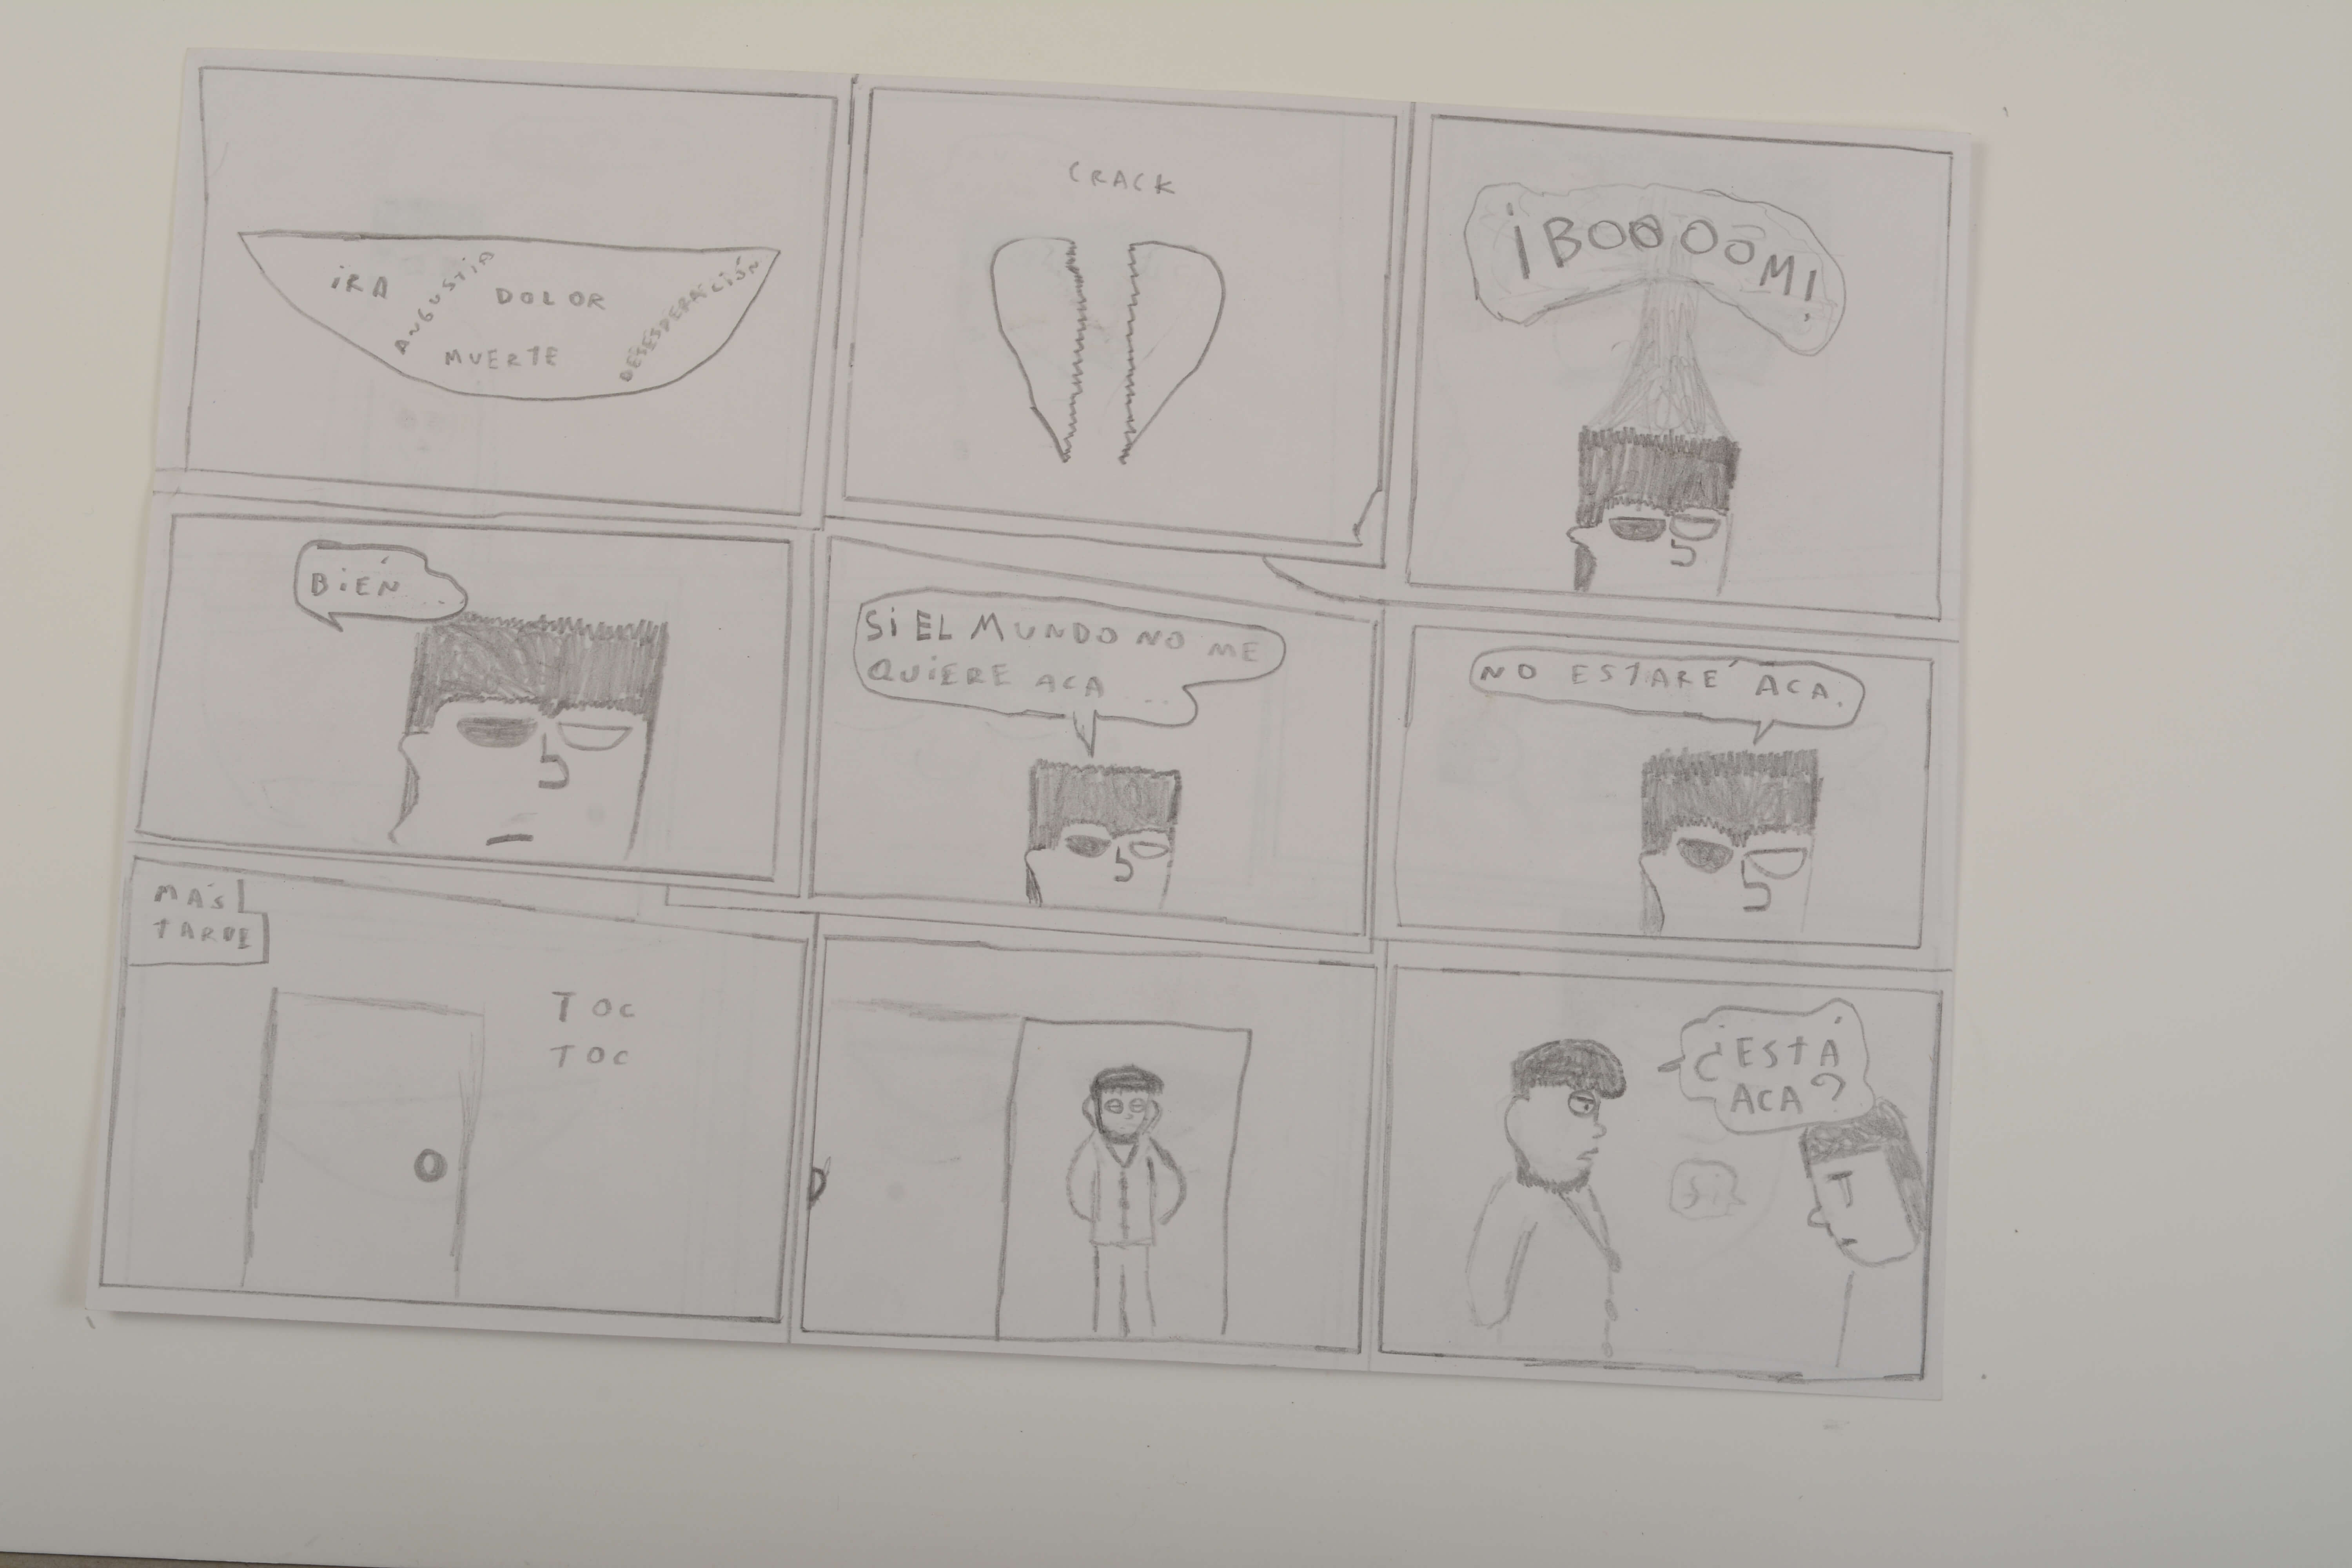 iRA
ANGUSTiA
DOLOR
MUERTE
DESESPERACiÓN
CRACK
¡BOOOOM!
BiÉN...
Si EL MUNDO NO ME
QUiERE ACA ...
NO ESTARÉ ACA.
MÁS
TARDE
TOC
TOC
¿ESTÁ
ACA?
Si